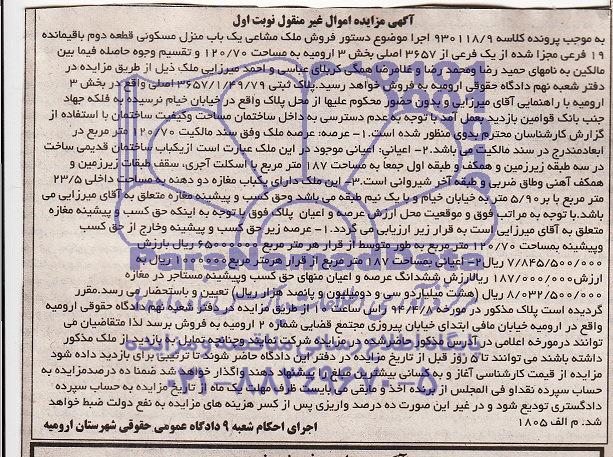 آگهی مزایده اموال غیر منقول نوبت اول
به موجب پرونده کلاسه ۹۳۰۱۱۸/۹ اجرا موضوع دستور فروش ملک مشاعی یک باب منزل مسکونی قطعه دوم باقیمانده
۱۹ فرعی مجزا شده از یک فرعی از ۳۶۵۷ اصلی بخش ۳ ارومیه به مساحت ۱۲۰/۷۰ و تقسیم وجوه حاصله فیما بین
مالکین به نامهای حمید رضا ومحمد رضا و غلامرضا همگی کربلای عباسی و احمد میرزایی ملک ذیل از طریق مزایده در
دفتر شعبه نهم دادگاه حقوقی ارومیه به فروش خواهد رسید.پلاک ثبتی ۳۶۵۷/۱/۱۹/۷۹ اصلی واقع در بخش ۳
ارومیه با راهنمایی آقای میرزایی و بدون حضور محکوم علیها از محل پلاک واقع در خیابان خیام نرسیده به فلکه جهاد
جنب بانک قوامین بازدید بعمل آمد با توجه به عدم دسترسی به داخل ساختمان مساحت وکمیت ساختمان با استفاده از
گزارش کارشناسان محترم بدوی منظور شده است.۱- عرصه: عرصه ملک وفق سند مالکیت ۱۲۰/۷۰ متر مربع در
ابعادمندرج در سند مالکیت می باشد.۲- اعیانی: اعیانی موجود در این ملک عبارت است ازیکباب ساختمان قدیمی ساخت
در سه طبقه زیرزمین و همکف و طبقه اول جمعاً به مساحت ۱۸۷ متر مربع با اسکلت آجری، سقف طبقات زیرزمین و
همکف آهنی وطاق ضربی و طبقه آخر شیروانی است.۳- این ملک دارای یکباب مغازه دو دهنه به مساحت داخلی ۲۳/۵
متر مربع با بر ۵/۹۰ متر به خیابان خیام و با یک نیم طبقه می باشد وحق کسب و پیشینه مغازه متعلق به آقای میرزایی می
باشد.با توجه به مراتب فوق و موقعیت محل ارزش عرصه و اعیان پلاک فوق با توجه به اینکه حق کسب و پیشینه مغازه
متعلق به آقای میرزایی است به قرار زیر ارزیابی می گردد.۱- عرصه زیر حق کسب و پیشینه وخارج از حق کسب
وپیشینه بمساحت ۱۲۰/۷۰ متر مربع به طور متوسط از قرار هر متر مربع ۶۵۰۰۰۰۰۰ ریال بارزش
۷/۸۴۵/۵۰۰/۰۰۰ ریال ۲- اعیانی بمساحت ۱۸۷ متر مربع از قرار هرمتر مربع ۱۰۰۰۰۰۰ ریال به
ارزش ۱۸۷/۰۰۰/۰۰۰ ریالارزش ششدانگ عرصه و اعیان منهای حق کسب وپیشینه مستاجر در مغازه
۸/۰۳۲/۵۰۰/۰۰۰ ریال (هشت میلیاردو سی و دومیلیون و پانصد هزار ریال) تعیین و باستحضار می رسد.مقرر
گردیده است پلاک مذکور در مورخه ۹۴/۴/۸ راس ساعت ۱۰ از طریق مزایده در دفتر شعبه نهم دادگاه حقوقی ارومیه
واقع در ارومیه خیابان مافی ابتدای خیابان پیروزی مجتمع قضایی شماره ۲ ارومیه به فروش برسد لذا متقاضیان می
توانند درمورخه اعلامی در آدرس مذکور حاضر و درمزایده شرکت نمایند.چنانچه تمایل به بازدید از ملک مذکور
داشته باشند می توانند تا ۵ روز قبل از تاریخ مزایده در دفتر این دادگاه حاضر شوند تا ترتیبی برای بازدید داده شود
مزایده از قیمت کارشناسی آغاز و به کسانی بیشترین مبلغ را پیشنهاد دهند واگذار خواهد شد ضمنا ده درصدمزایده به
حساب سپرده نقداو فی المجلس از برنده اخذ و مابقی می بایست ظرف مهلت یک ماه از تاریخ مزایده به حساب سپرده
دادگستری تودیع شود و در غیر این صورت ده درصد واریزی پس از کسر هزینه های مزایده به نفع دولت ضبط خواهد
شد. م الف ۱۸۰۵
اجرای احکام شعبه ۹ دادگاه عمومی حقوقی شهرستان ارومیه
۰۲۱-۸۸۳۴۹۶۷۰-۵